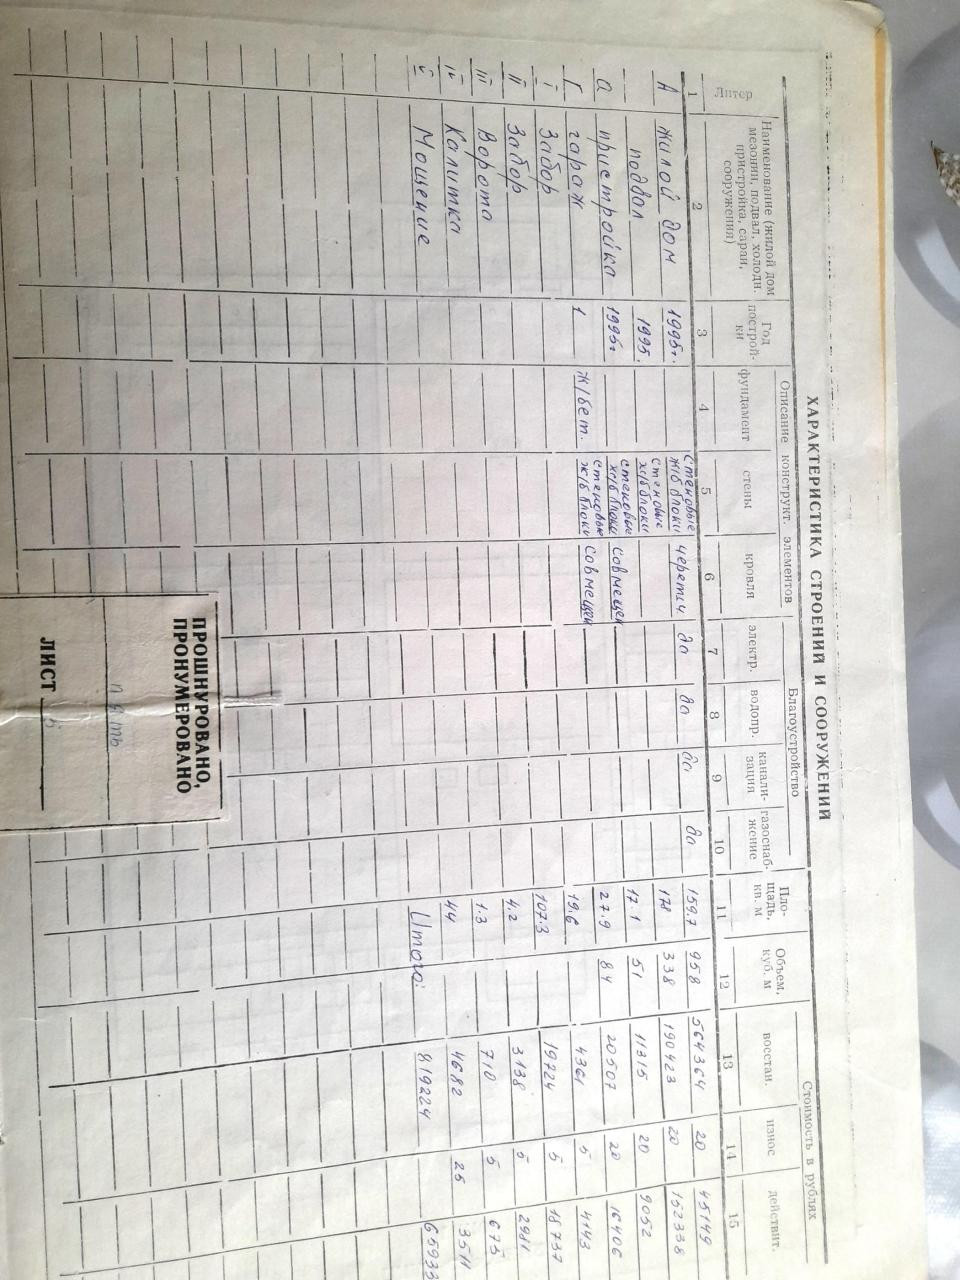 ХАРАКТЕРИСТИКА СТРОЕНИЙ И СООРУЖЕНИЙ
Литер
Наименование (жилой дом мезонин, подвал, холодн. пристройка, сараи, сооружения)
Год постройки
Описание конструкт. элементов
фундамент
стены
кровля
Благоустройство
электр.
водопр.
канализация
газоснабжение
Площадь, кв. м
Объем, куб. м
Стоимость в рублях
восстан.
износ
действит.
1 2 3 4 5 6 7 8 9 10 11 12 13 14 15
А жилой дом 1995г. стеновые ж/б блоки черепич. да да да да 159.7 958 564364 20 451491
подвал 1995. стеновые ж/б блоки 178 338 190423 20 152338
а пристройка 1995г. стеновые ж/б блоки совмещен 17.1 51 11315 20 9052
Г гараж 1 ж/бет. стеновые ж/б блоки совмещен 27.9 84 20507 20 16406
I Забор 19.6 4361 5 4143
II Забор 107.3 19724 5 18737
III Ворота 4.2 3138 5 2981
IV Калитка 1.3 710 5 675
V Мощение 44 4682 25 3511
Итого: 819224
ПРОШНУРОВАНО,
ПРОНУМЕРОВАНО
пять
ЛИСТ